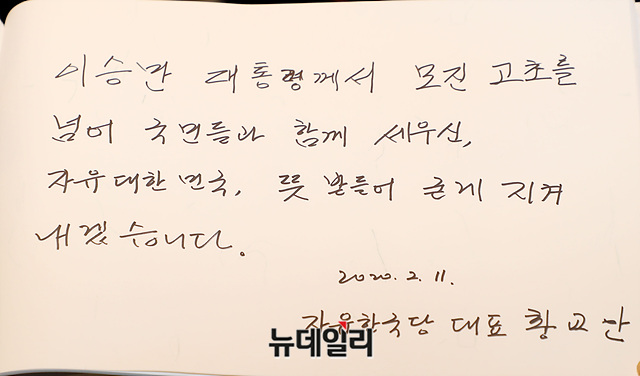 이승만 대통령께서 모진 고초를
넘어 국민들과 함께 세우신,
자유대한민국, 뜻 받들어 굳게 지켜
내겠습니다.
2020. 2. 11.
자유한국당 대표 황교안
뉴데일리